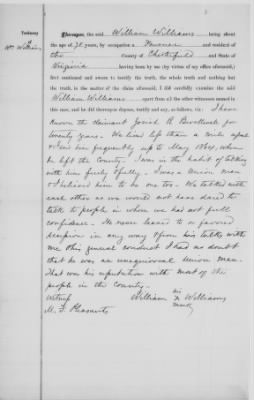 Testimony
of
Wm Williams
Thereupon, the said William Williams being about
the age of 72 years, by occupation a Farmer and resident of
the County of Chesterfield and State of
Virginia having been by me (by virtue of my office aforesaid,)
first cautioned and sworn to testify the truth, the whole truth and nothing but
the truth, in the matter of the claim aforesaid; I did carefully examine the said
William Williams apart from all the other witnesses named in
this case, and he did thereupon depose, testify and say, as follows, viz: I have
Known the claimant Josiah R. for
twenty years. We lived less than a mile apart
& I saw him frequently up to May 1864, when
he left the County. I was in the habit of talking
with him freely & fully. I was a Union man
& I believed him to be one too. We talked with
each other as we would not have dared to
talk to people in whom we had not full
confidence. He never leaned to or favored
secession in any way & from his talks with
me & his general conduct I had no doubt
that he was an unequivocal Union man.
That was his reputation with most of the
people in the County.
Witness William his x mark Williams
M. F. Pleasants